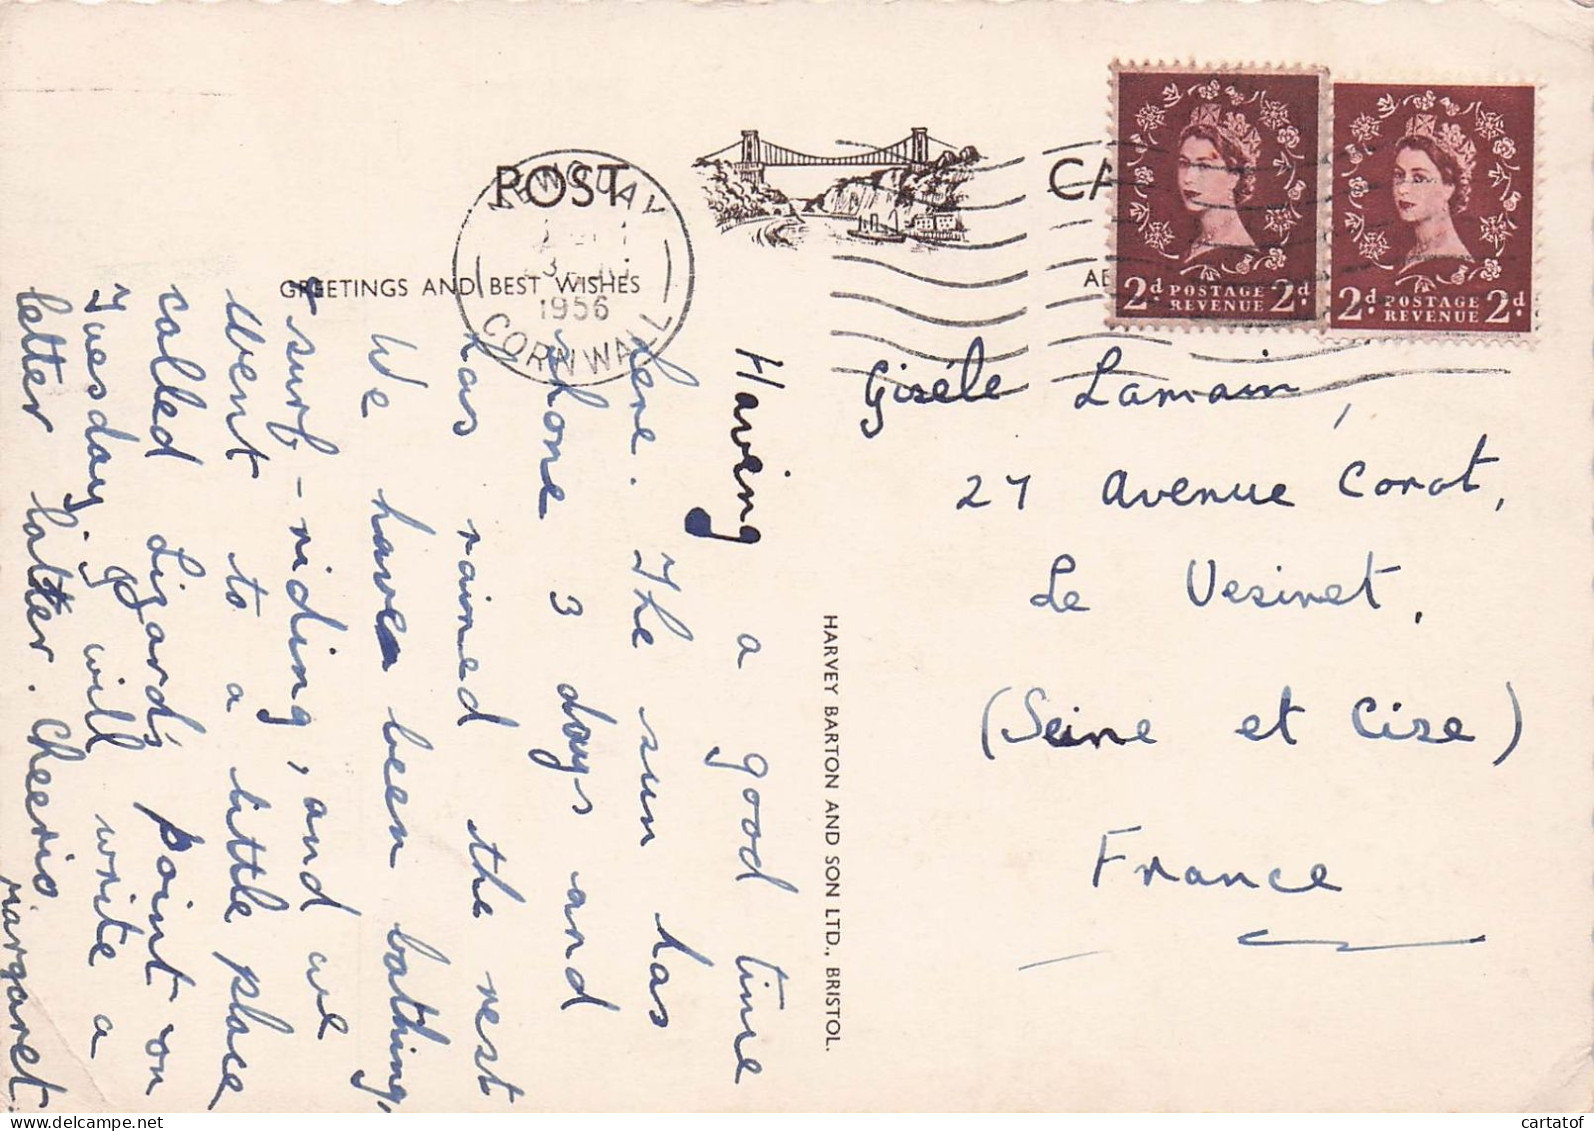 POST
CA
NEWQUAY
1956
CORNWALL
GREETINGS AND BEST WISHES
2d POSTAGE REVENUE 2d
2d POSTAGE REVENUE 2d
Having a good time
here. The sun has
shone 3 days and
has rained the rest
We have been bathing,
+ surf-riding, and we
Went to a little place
called Lizard's point on
Tuesday. I will write a
letter latter. Cheerio.
Margaret.
HARVEY BARTON AND SON LTD., BRISTOL.
Gisèle Lamain,
27 Avenue Corot,
Le Vesinet,
(Seine et Oise)
France
cartatof